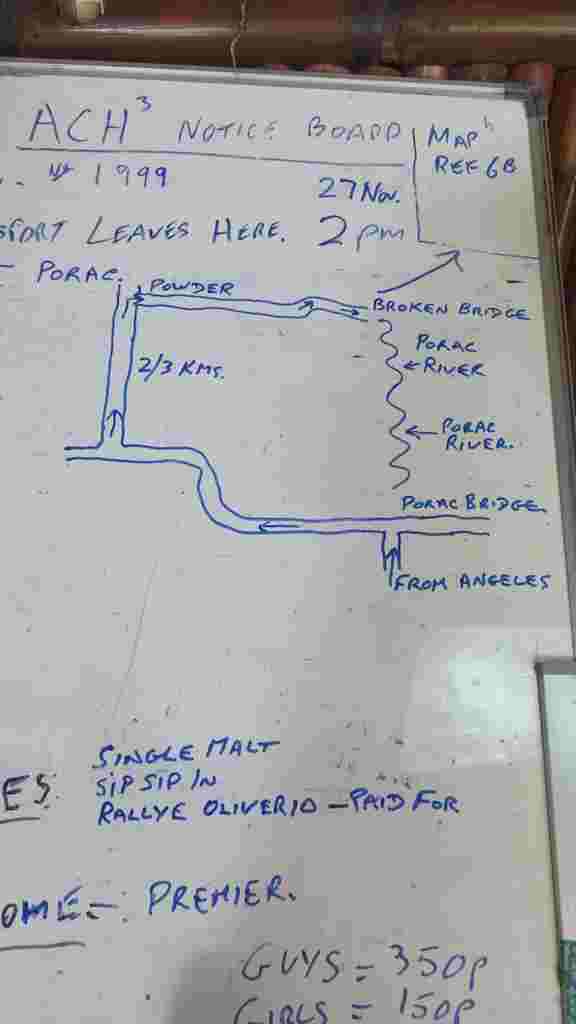 ACH³ NOTICE BOARD
MAP
REF 6B
Nº 1999
27 Nov.
LEAVES HERE. 2 pm
PORAC.
POWDER
BROKEN BRIDGE
2/3 KMS.
PORAC
RIVER
PORAC
RIVER.
PORAC BRIDGE.
FROM ANGELES
SINGLE MALT
ES: SIP SIP IN
RALLYE OLIVERIO - PAID FOR
OME -: PREMIER.
GUYS = 350P
GIRLS = 150P